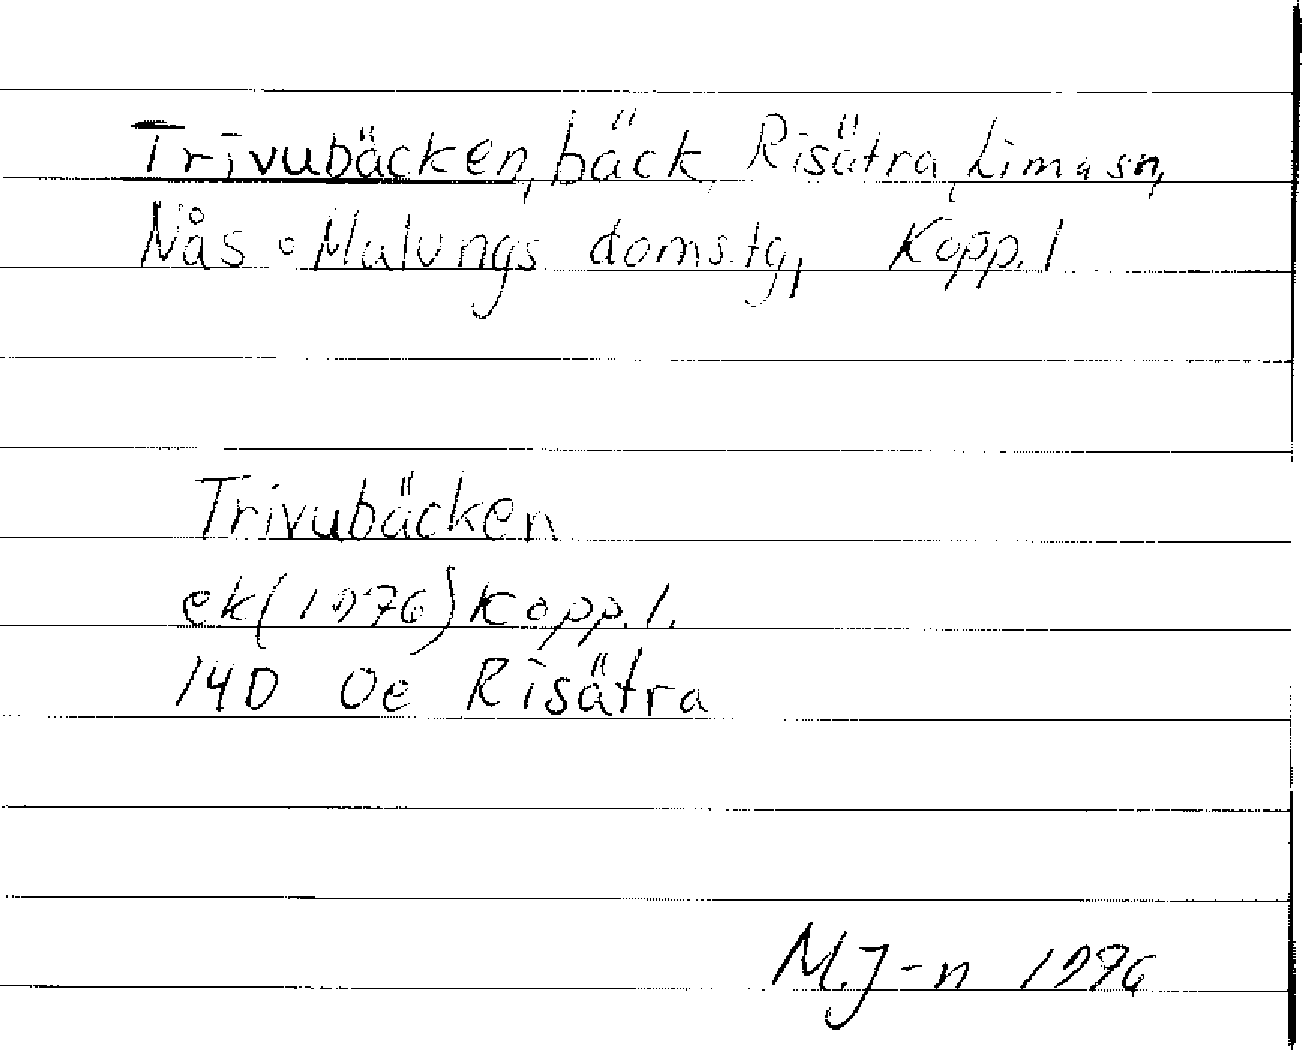 Trivubäcken, bäck, Risätra, Lima sn,
Nås o Malungs domstg, Kopp. l
Trivubäcken
ek (1976) Kopp. l.
14D Oe Risätra
M.J-n 1976